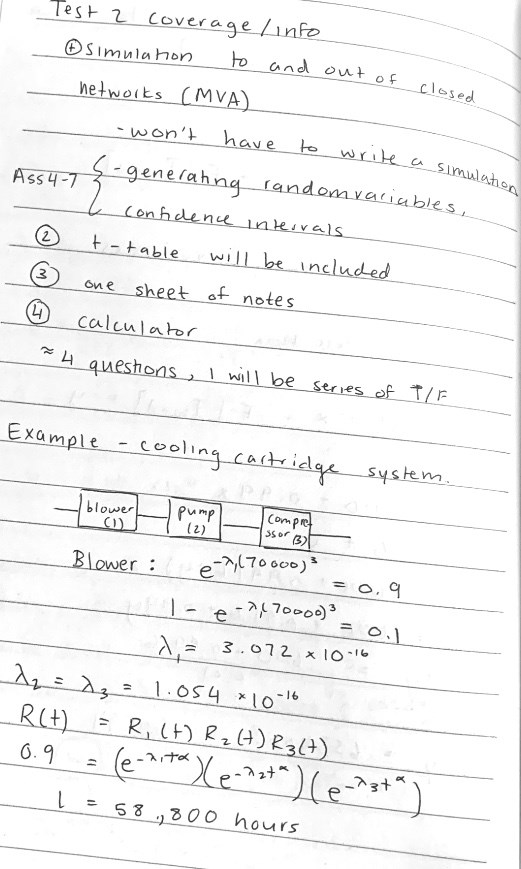 Test 2 coverage/info
① simulation to and out of closed
networks (MVA)
- won't have to write a simulation
Ass 4-7 { - generating random variables,
confidence intervals
② t-table will be included
③ one sheet of notes
④ calculator
≈ 4 questions, 1 will be series of T/F
Example - cooling cartridge system.
blower (1) pump (2) compressor (3)
Blower: e^-λ₁(70000)³ = 0.9
1 - e^-λ₁(70000)³ = 0.1
λ₁ = 3.072 × 10^-16
λ₂ = λ₃ = 1.054 × 10^-16
R(t) = R₁(t) R₂(t) R₃(t)
0.9 = (e^-λ₁t^α)(e^-λ₂t^α)(e^-λ₃t^α)
l = 58,800 hours